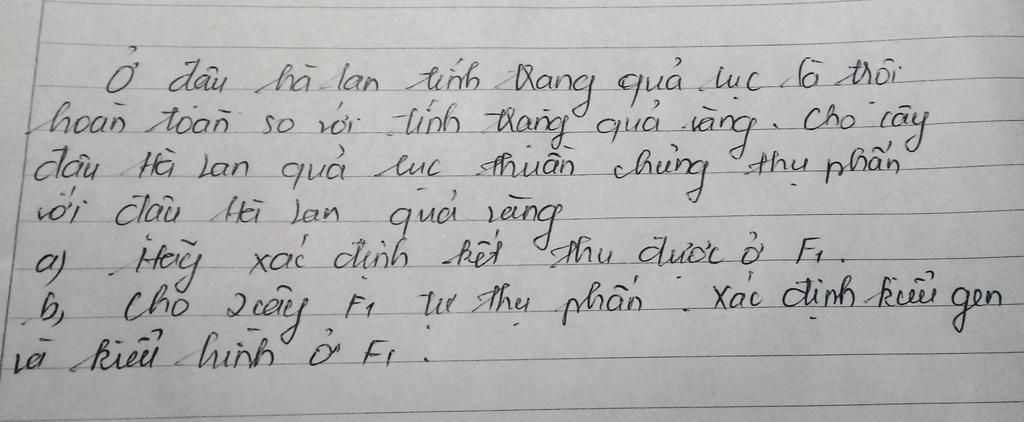 Ở đậu hà lan tính trạng quả lục là trội
hoàn toàn so với tính trạng quả vàng. Cho cây
đậu Hà Lan quả lục thuần chủng thụ phấn
với đậu Hà Lan quả vàng
a) Hãy xác định kết thu được ở F1.
b, Cho 2 cây F1 tự thụ phấn. Xác định kiểu gen
và kiểu hình ở F1.